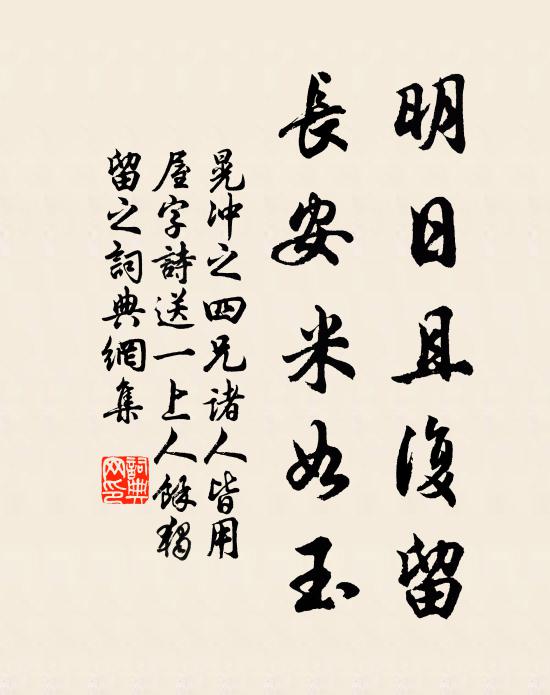 明日且復留
長安米如玉
晁沖之四兄諸人皆用
屋字詩送一上人餘獨
留之詞典網集
詞典網印